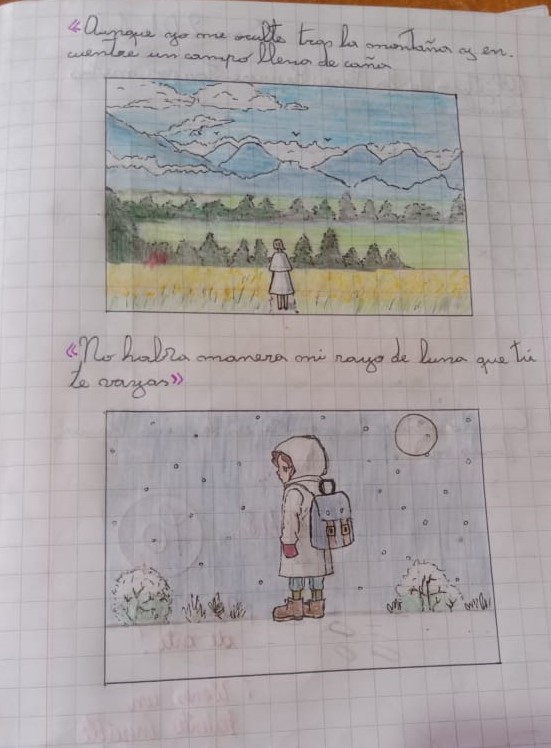 «Aunque yo me oculte tras la montaña y en-
cuentre un campo lleno de caña
«No habra manera mi rayo de luna que tú
te vayas»